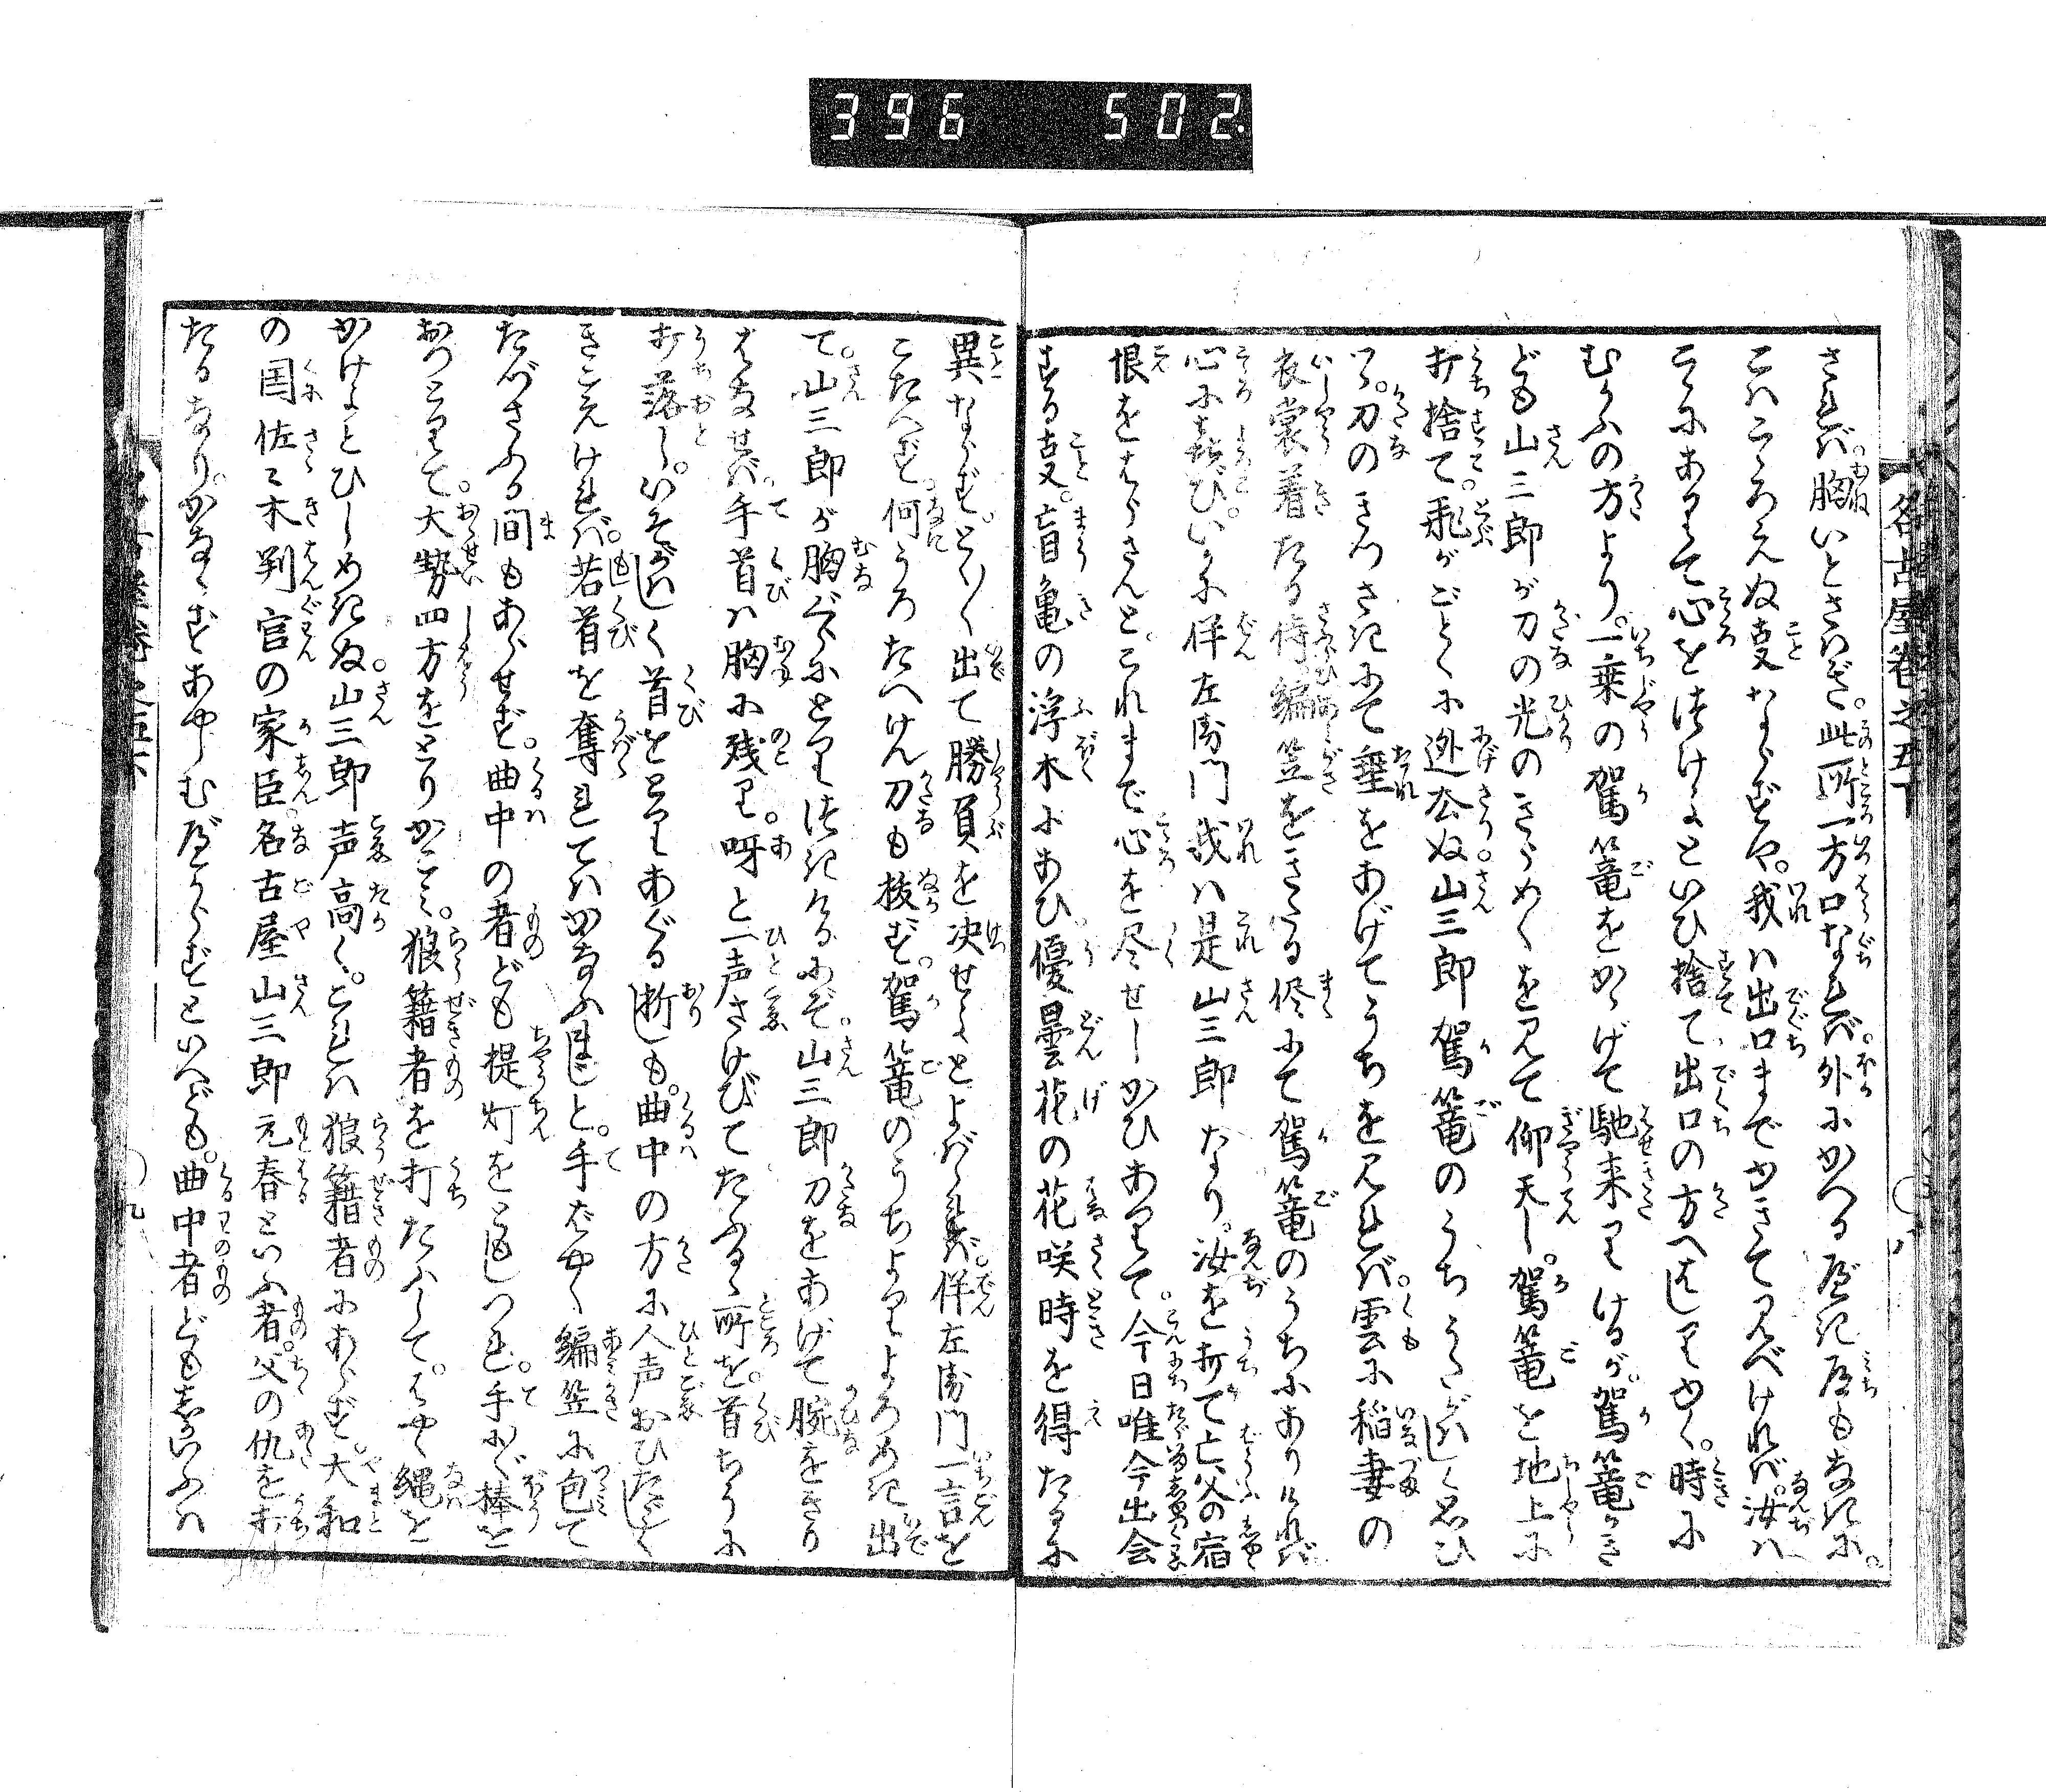 396 502
名古屋巻之五下 八
されば。胸いとさわぎ。此所一方口なれば。外にかへるべき道もなきに。
こハこゝろえぬ事ならずや。我ハ出口までゆきて見べければ。汝ハ
こゝにありて心を付けよといひ捨て出口の方へはしりゆく。時に
むかふの方より。一乗の駕篭をかゝげて馳来りけるが。駕篭かき
ども山三郎が刀の光のきらめくを見て仰天し。駕篭を地上に
打捨て。飛がごとくに迯去ぬ山三郎駕篭のうちうたがハしく思ひ
つゝ。刀のきつさきにて垂をあげてうちを見れば。雲に稲妻の
衣裳着たる侍編笠をきたる侭にて駕篭のうちにありければ
心に喜び。いかに伴左衛門我ハ是山三郎なり。汝を打て亡父の宿
恨をはらさんと。これまで心を尽せしかひありて。今日唯今出会
する事。盲亀の浮木にあひ優曇花の花咲時を得たるに
異ならず。とく〳〵出て勝負を决せよとよばゝれば。伴左衛門一言を
こたへず。何うろたへけん刀も抜ず。駕篭のうちよりよろめき出
て。山三郎が胸ぐらにとり付きけるにぞ。山三郎刀をあげて腕をきり
はなせば。手首ハ胸に残り。呀と一声さけびてたふるゝ所を。首ちうに
打落し。いそがハしく首をとりあぐる折しも。曲中の方に人声おひたゝしく
きこえければ。若首を奪れてハかなふまじと。手ばやく編笠に包て
たづさふる間もあらせず。曲中の者ども提灯をともしつれ。手に〴〵棒を
おつとりて。大勢四方をとりかこミ。狼籍者を打たふして。はやく縄を
かけよとひしめきぬ。山三郎声高く。これハ狼籍者にあらず。大和
の国佐々木判官の家臣。名古屋山三郎元春といふ者。父の仇を打
たるなり。かならずあやしむべからずといへども。曲中者ども志かいふハ
九